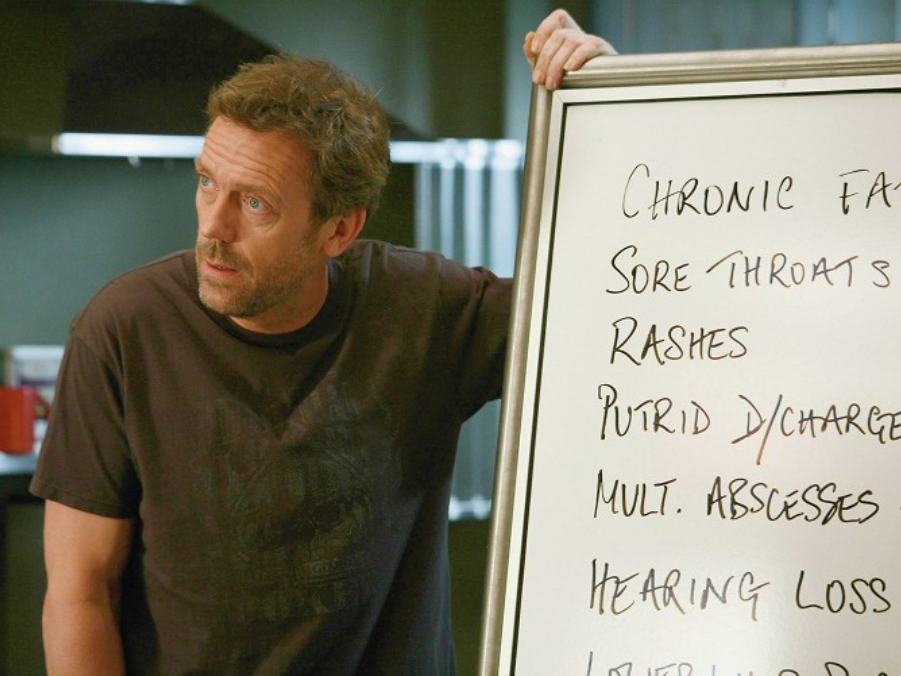 CHRONIC FA
SORE THROATS
RASHES
PUTRID D/CHARGE
MULT. ABSCESSES
HEARING LOSS